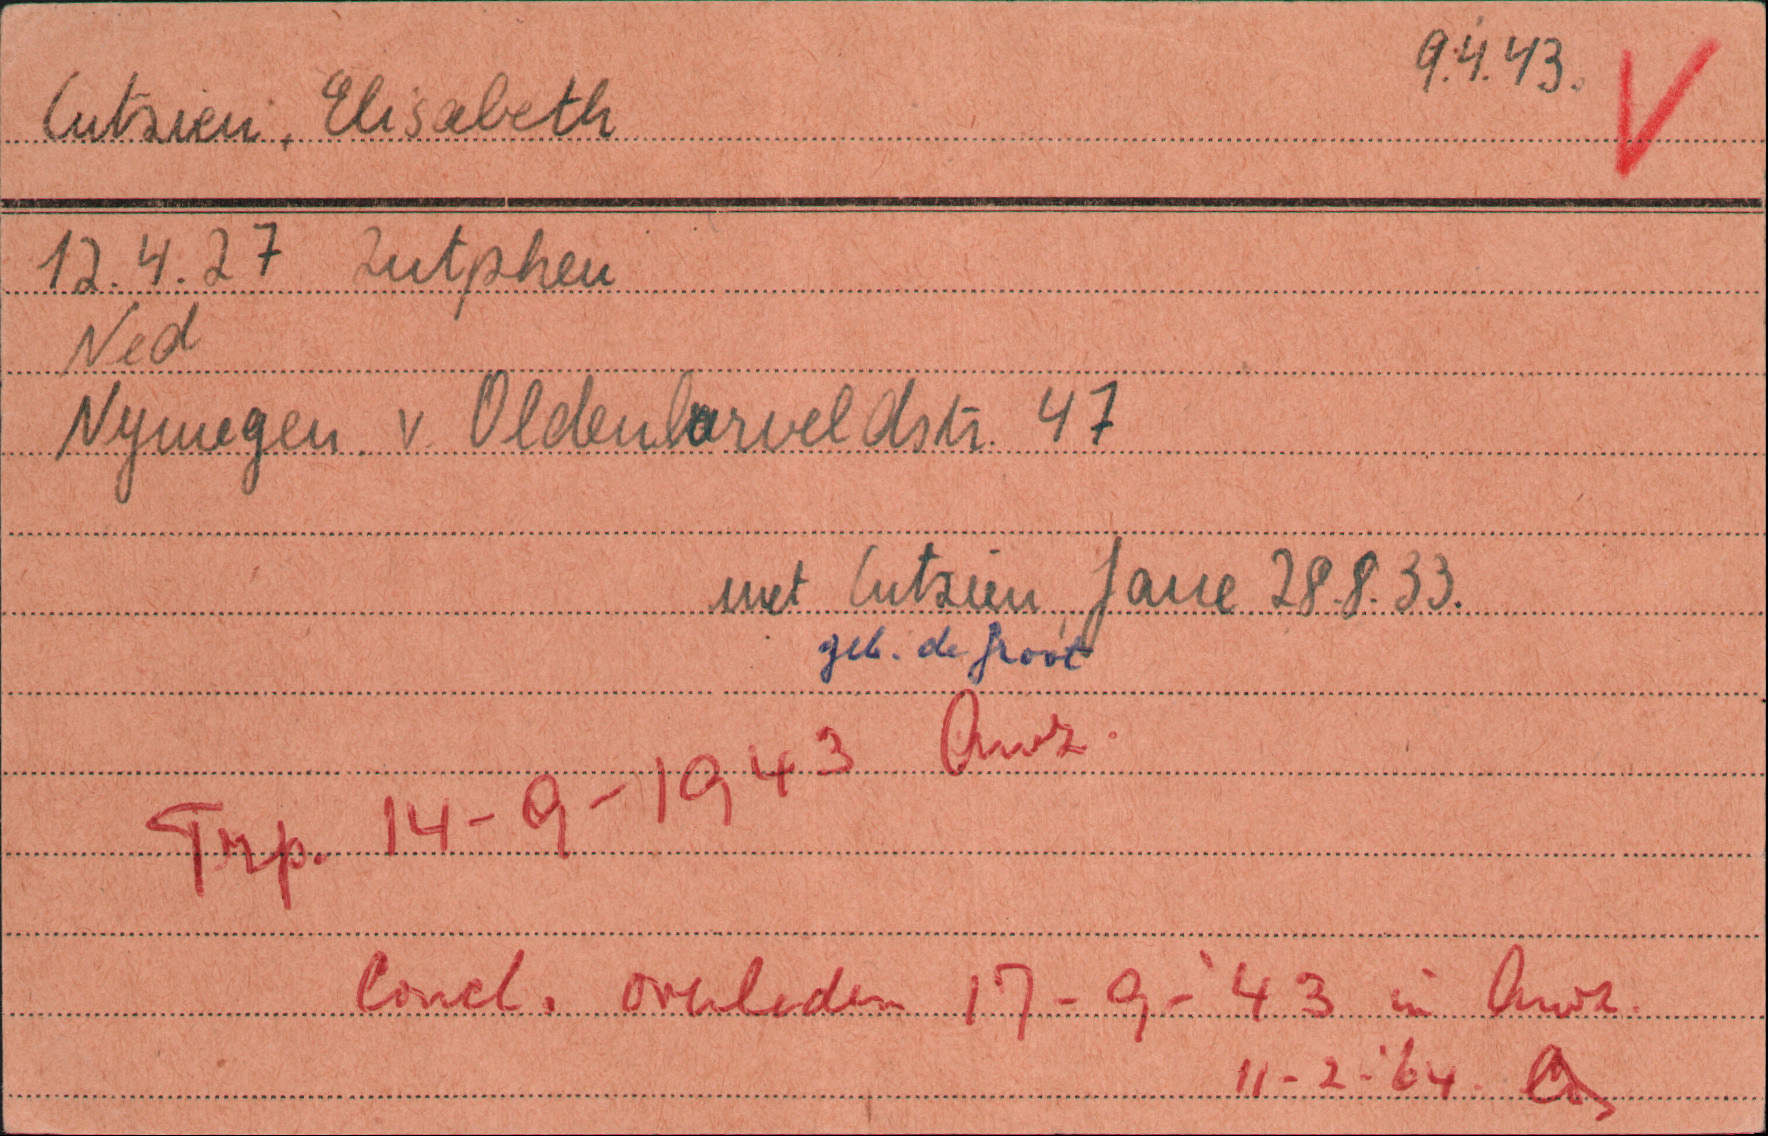 9.4.43.
Cutzien, Elisabeth
12.4.27 Zutphen
Ned
Nymegen. v. Oldenbarveldstr. 47
met Cutzien Janne 28.8.33.
geb. de Groot
Trp. 14-9-1943 Auz.
Concl. overleden 17-9-'43 in Auz.
11-2-'64.